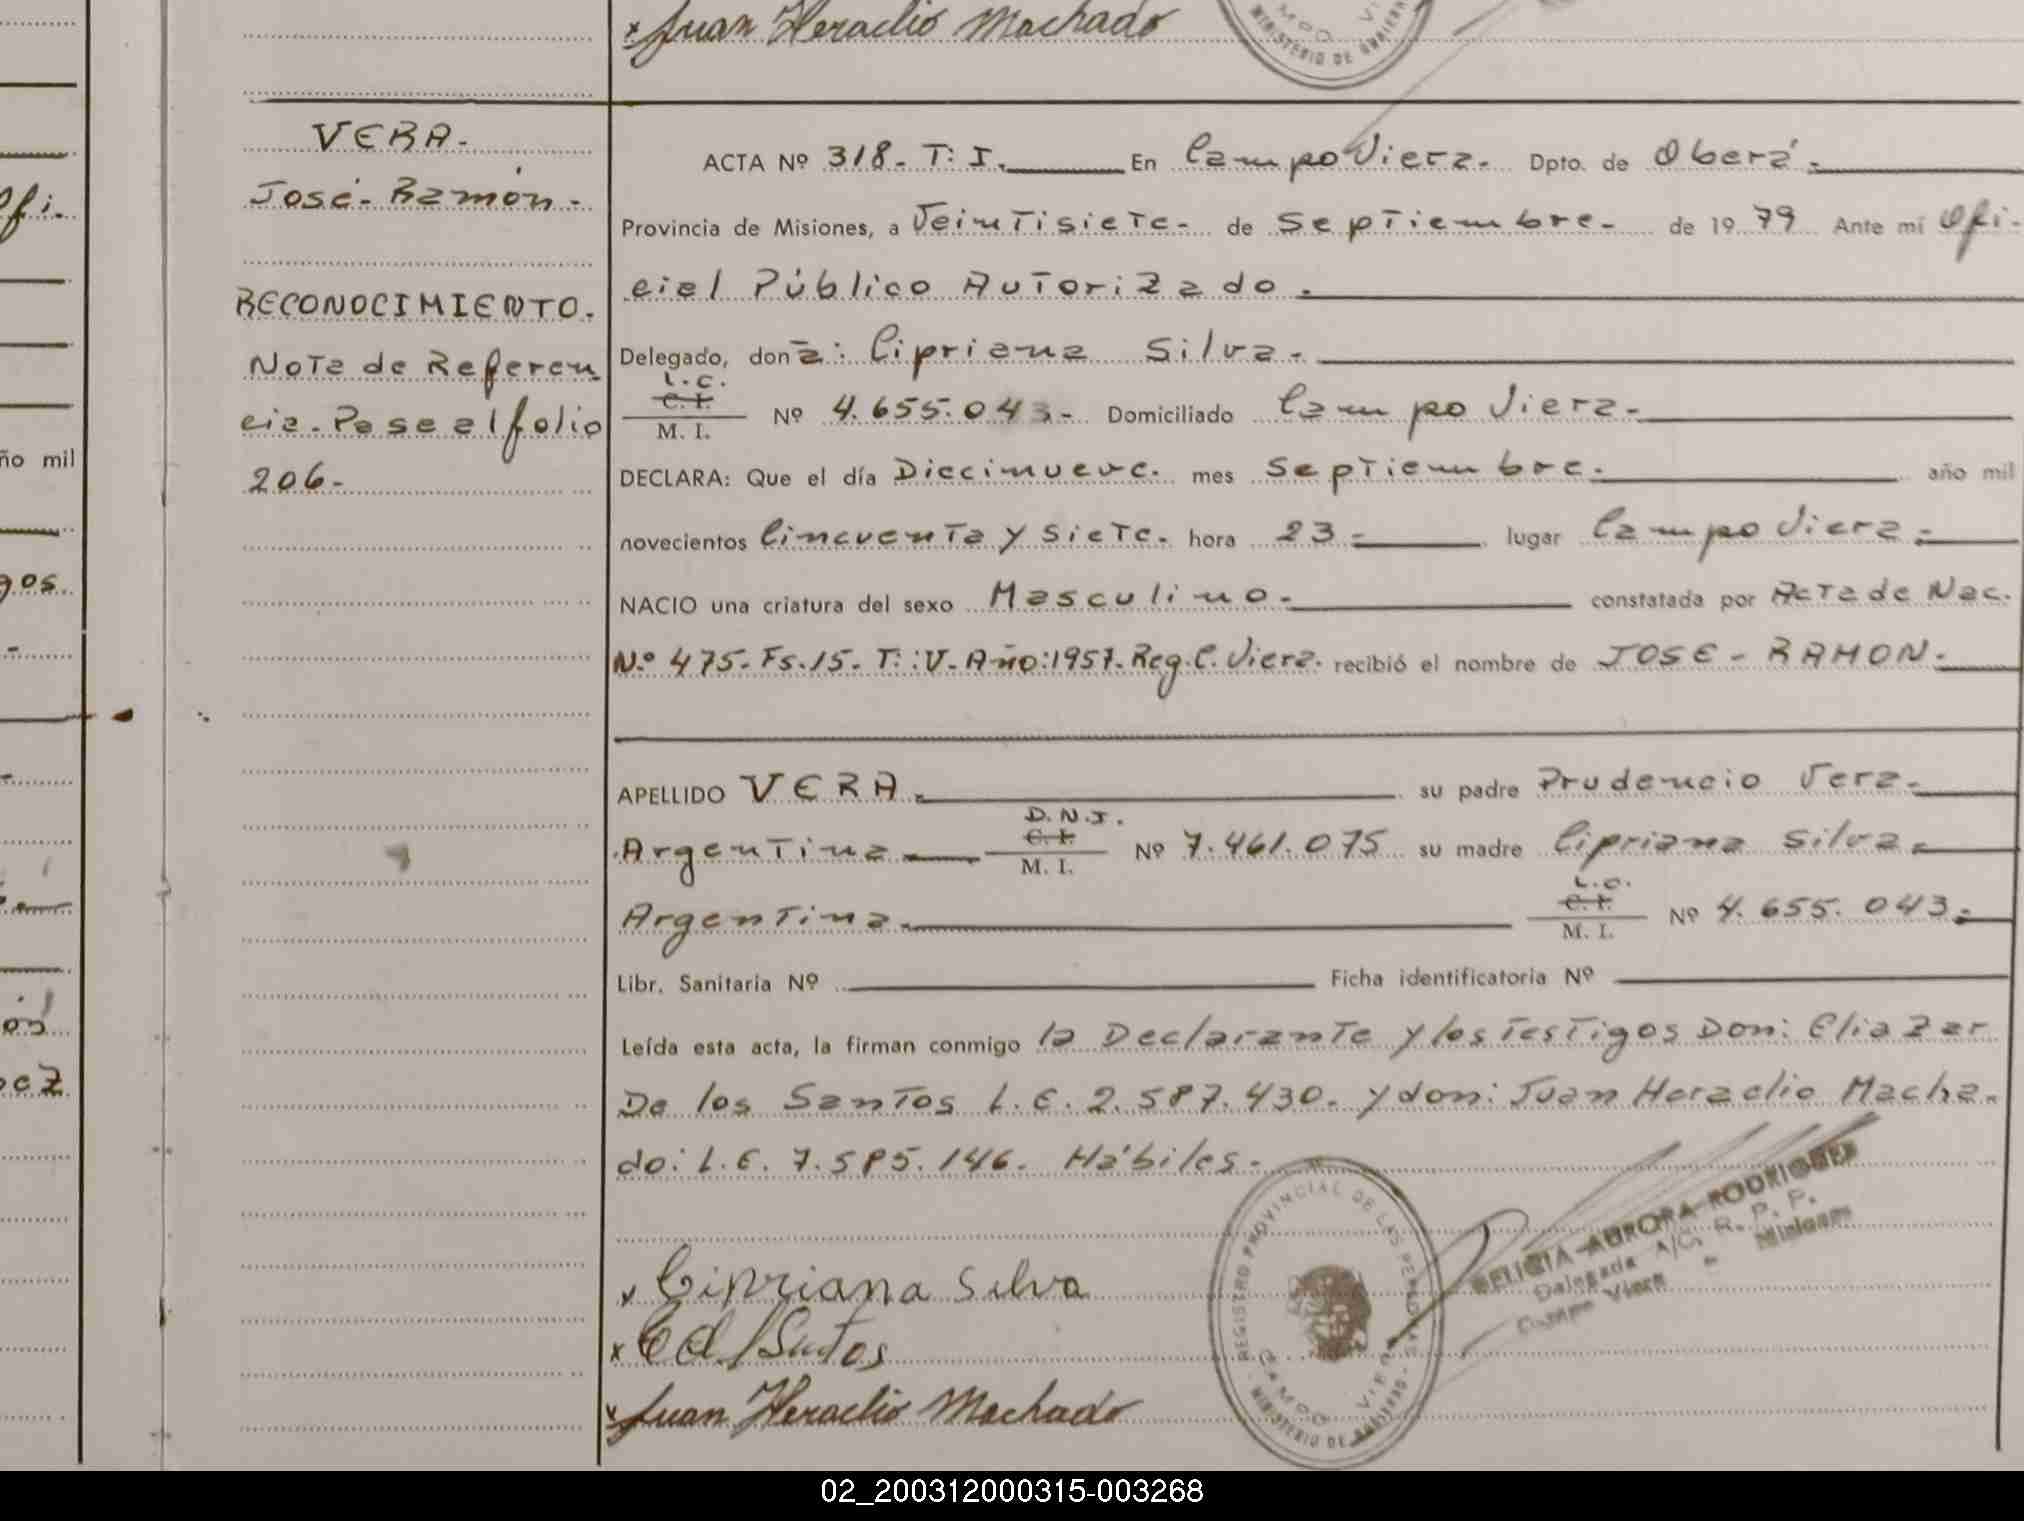 x Juan Heraclio Machado
MINISTERIO DE GOBIERNO
VERA.
José-Ramón-
RECONOCIMIENTO.
Nota de Referen
cia. Pase al folio
206-
ofi.
ño mil
gos
oez
ACTA Nº 318-T: I. En Campo Viera. Dpto. de Oberá.
Provincia de Misiones, a Veintisiete- de Septiembre- de 1979 Ante mí Ofi-
cial Público Autorizado.
Delegado, don a: Cipriana Silva.
L.C.
C. I.
M. I. Nº 4.655.043- Domiciliado Campo Viera-
DECLARA: Que el día Diecinueve. mes Septiembre. año mil
novecientos Cincuenta y Siete. hora 23 lugar Campo Viera.
NACIO una criatura del sexo Masculino. constatada por Acta de Nac.
N.º 475-Fs.15-T:V-Año:1957-Reg.C.Viera. recibió el nombre de JOSE-RAMON.
APELLIDO VERA. su padre Prudencio Vera-
D.N.I.
C. I.
Argentina M. I. Nº 7.461.075 su madre Cipriana Silva
L.C.
C. I.
Argentina. M. I. Nº 4.655.043-
Libr. Sanitaria Nº Ficha identificatoria Nº
Leída esta acta, la firman conmigo la Declarante y los testigos Don: Eliazar
De los Santos L.E. 2.587.430. y don: Juan Heraclio Macha-
do: L.E. 7.585.146. Hábiles.
x Cipriana Silva
x Santos
x Juan Heraclio Machado
REGISTRO PROVINCIAL DE LAS PERSONAS
CAMPO VIERA
MINISTERIO DE GOBIERNO
DELICIA AURORA RODRIGUEZ
Delegada A/C. R. P. P.
Campo Viera - Misiones
02_200312000315-003268